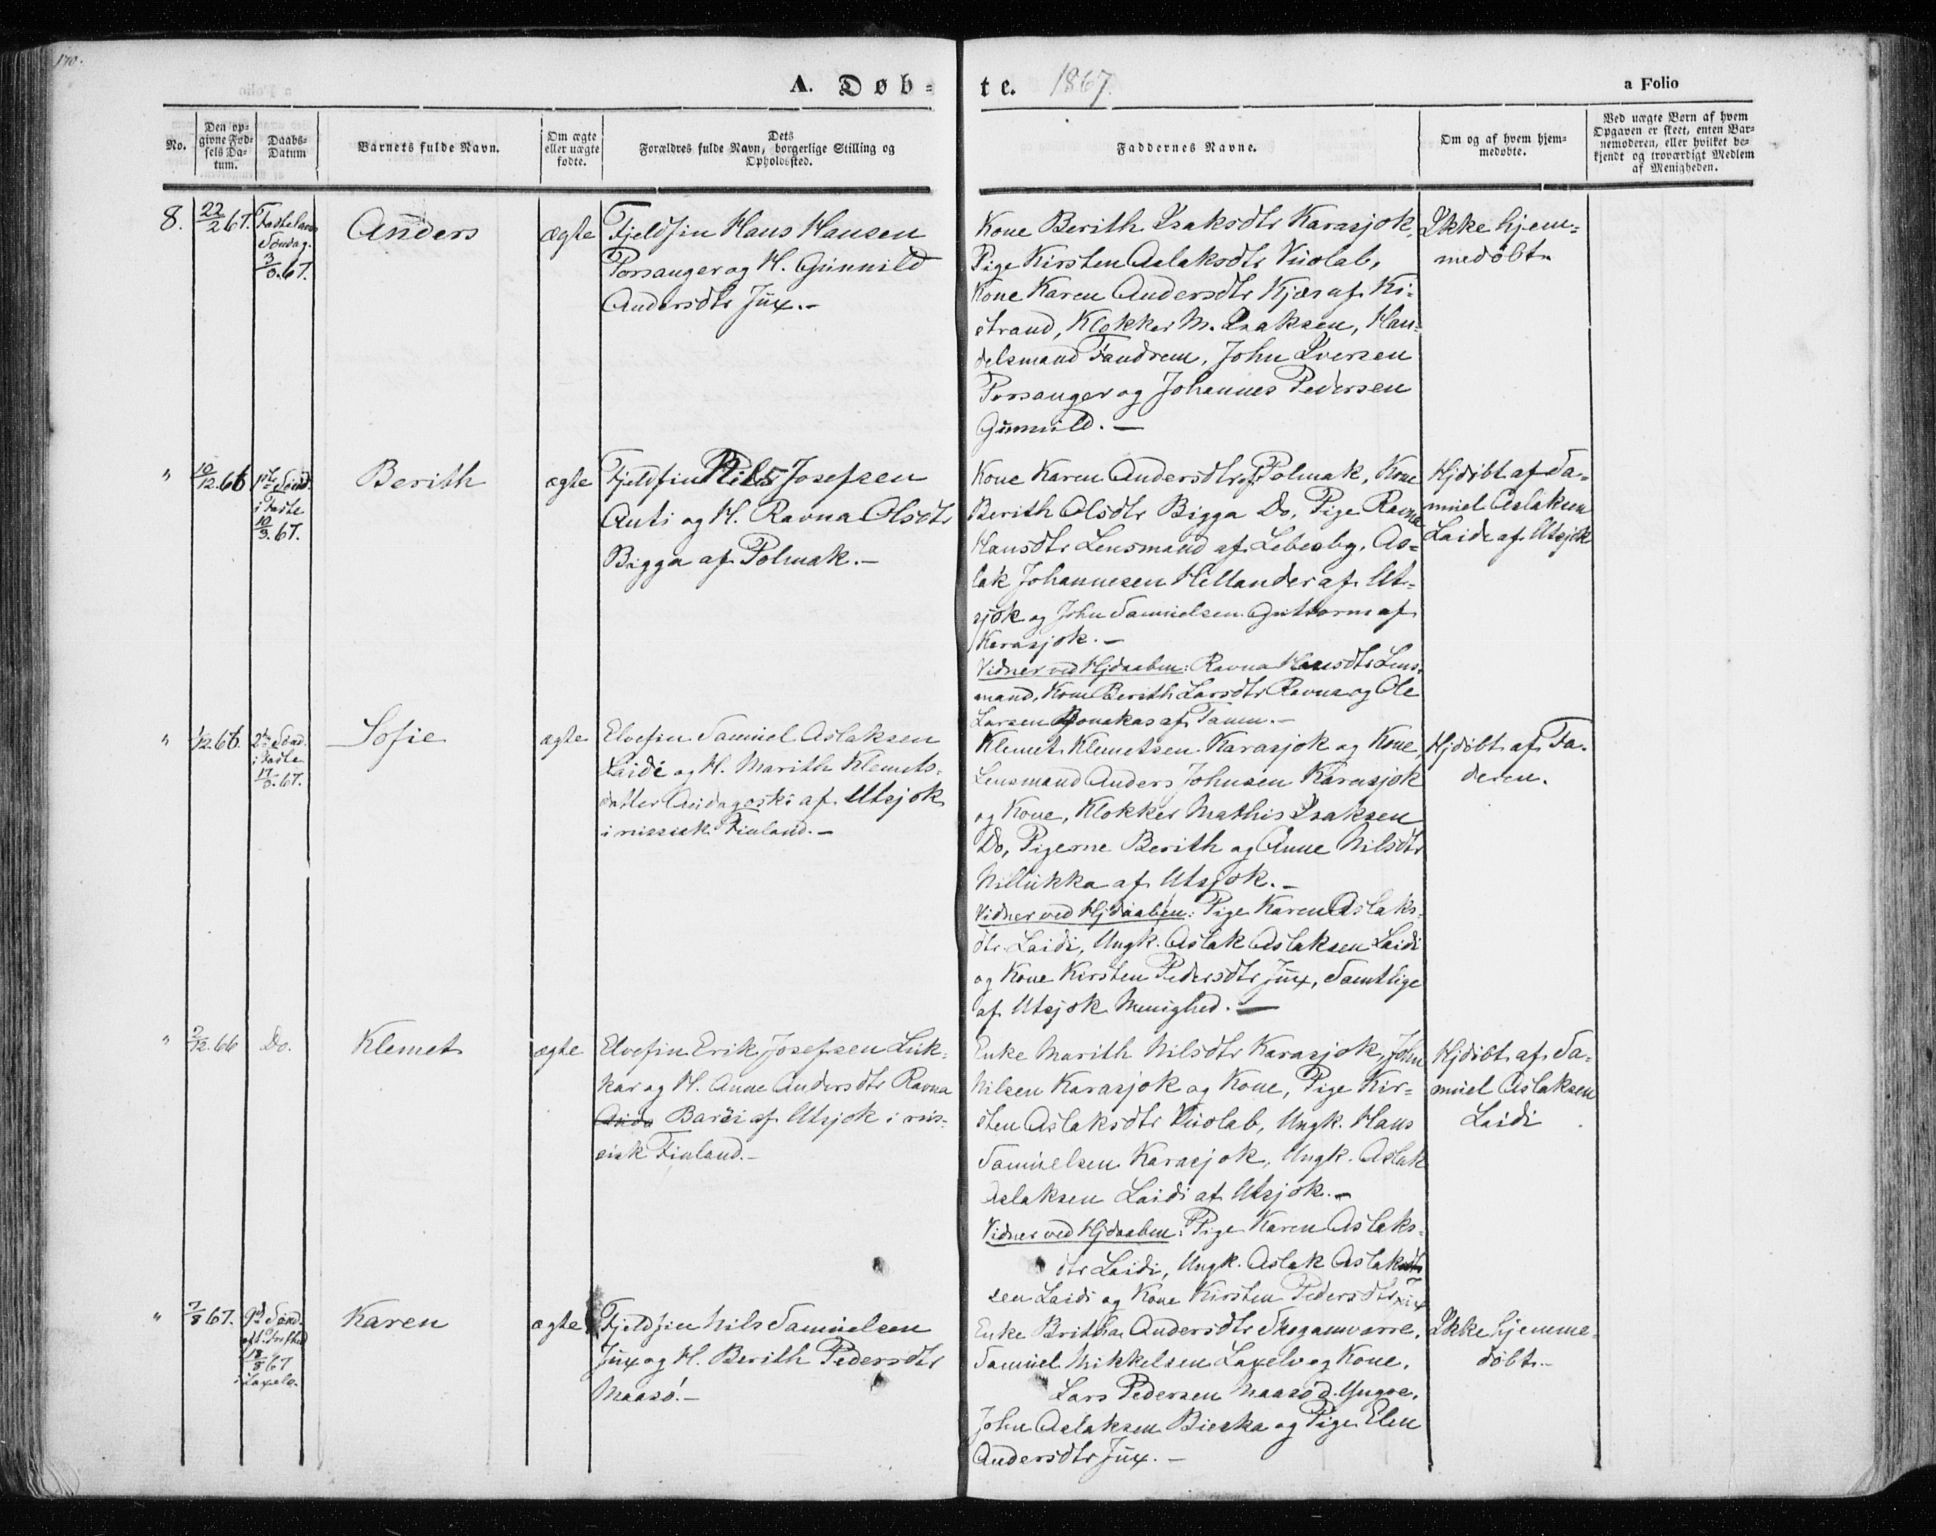 170.
A. Døb-
te. 1867.
a Folio
No.
Den op-
givne Fød-
sels Da-
tum.
Daabs-
Datum
Barnets fulde Navn.
Om ægte
eller uægte
fødte.
Dets
Forældres fulde Navn, borgerlige Stilling og
Opholdssted.
Faddernes Navne.
Om og af hvem hjem-
medøbte.
Ved uægte Børn af hvem
Opgaven er skeet, enten Bar-
nemoderen, eller hvilket be-
kjendt og troværdigt Medlem
af Menigheden.
8.
22/2 67.
Fastelavns
Søndag.
3/3 67.
Anders
ægte
Fjeldfin Hans Hansen
Porsanger og H. Gunnild
Andersdtr Jux.-
Kone Berith Isaksdtr Karasjok,
Pige Kirsten Aslaksdtr Vuolab,
Kone Karen Andersdtr Kjæs af Ki-
strand, Klokker M. Isaksen, Han-
delsmand Fandrem, John Iversen
Porsanger og Johannes Pedersen
Gunnild. —
Ikke hjem-
medøbt.
"
10/12 66
1ste Sønd.
i Faste
10/3 67.
Berith
ægte
Fjeldfin Nils Josefsen
Anti og H. Ravna Olsdtr
Bigga af Polmak.-
Kone Karen Andersdtr af Polmak, Kone
Berith Olsdtr Bigga Do, Pige Ravna
Hansdtr Lensmand af Lebesby, As-
lak Johannesen Hellander af Ut-
sjok og John Samuelsen Guttorm af
Karasjok.-
Vidner ved Hjdaaben: Ravna Hansdtr Lens-
mand, Kone Berith Larsdtr Ravna og Ole
Larsen Ponakas af Tanen.-
Hjdøbt af Sa-
muel Aslaksen
Laidi af Utsjok
"
1/12 66.
2den Sønd.
i Faste
17/3 67.
Sofie
ægte
Elvefin Samuel Aslaksen
Laidi og H. Marith Klemets-
datter Aidagoski af Utsjok
i russisk Finland.-
Klemet Klemetsen Karasjok og Kone,
Lensmand Anders Johnsen Karasjok
og Kone, Klokker Mathis Isaksen
Do, Pigerne Berith og Anne Nilsdtr
Nillukka af Utsjok.-
Vidner ved Hjdaaben: Pige Karen Aslaks-
dtr Laidi, Ungk. Aslak Aslaksen Laidi
og Kone Kirsten Pedersdtr Jux, Samtlige
af Utsjok Menighed.—
Hjdøbt af Fa-
deren.
"
2/12 66
Do.
Klemet
ægte
Elvefin Erik Josefsen Luk-
kar og H. Anne Andersdtr Ravna
Barsi af Utsjok i rus-
sisk Finland.-
Enke Marith Nilsdtr Karasjok, John
Nilsen Karasjok og Kone, Pige Kir-
sten Aslaksdtr Vuolab, Ungk. Hans
Samuelsen Karasjok, Ungk. Aslak
Aslaksen Laidi af Utsjok.-
Vidner ved Hjdaaben: Pige Karen Aslaks-
dtr Laidi, Ungk. Aslak Aslak
sen Laidi og Kone Kirsten Pedersdtr Jux
Hjdøbt af Sa-
muel Aslaksen
Laidi
"
7/8 67.
9de Sønd.
eft. Trefhed
18/8 67
i Laxelv.
Karen
ægte
Fjeldfin Nils Samuelsen
Jux og H. Berith Pedersdtr
Maasø.-
Enke Britha Andersdtr Skoganvarre,
Samuel Mikkelsen Laxelv og Kone,
Lars Pedersen Maasø d. Yngre,
John Aslaksen Bieska og Pige Elen
Andersdtr Jux.-
Ikke hjemme-
døbt.-